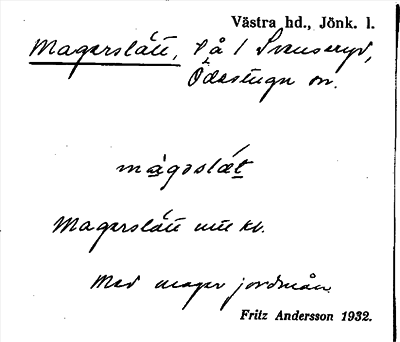 Västra hd., Jönk. l.
Magerslätt, på / Svenseryd,
Ödestugu sn.
màgəslæt
Magerslätt
Med mager jordmån.
Fritz Andersson 1932.